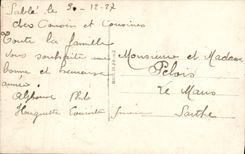 Sablé le 30-12-27
des Cousin et Cousines
Toute la famille
vous souhaite une
bonne et heureuse
année
Alphonse
Huguette
Monsieur et Madame
Pelois
Le Mans
Sarthe